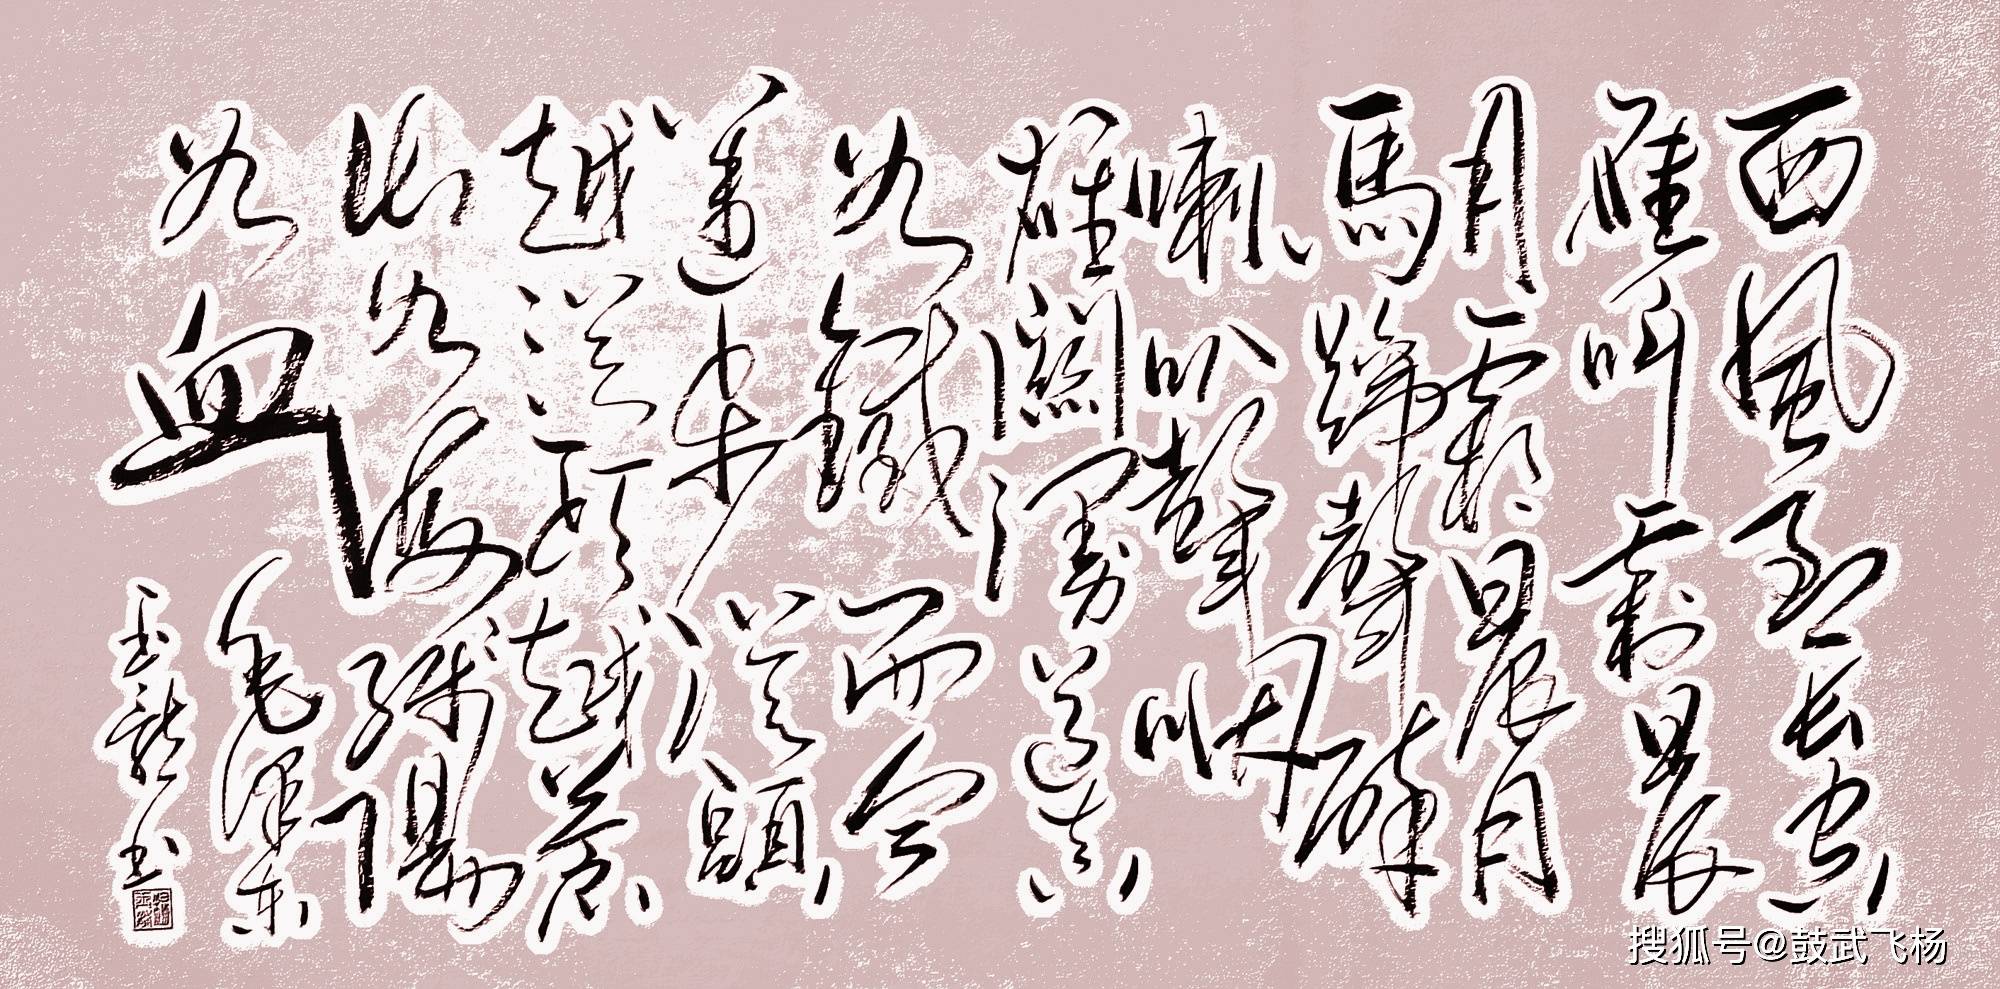 西風烈長空
雁叫霜晨
月霜晨月
馬蹄聲碎
喇叭聲咽
雄關漫道真
如鐵而今
邁步從頭
越從頭越蒼
山如海殘陽
如血
毛澤東
玉龍書
搜狐号@鼓武飞杨